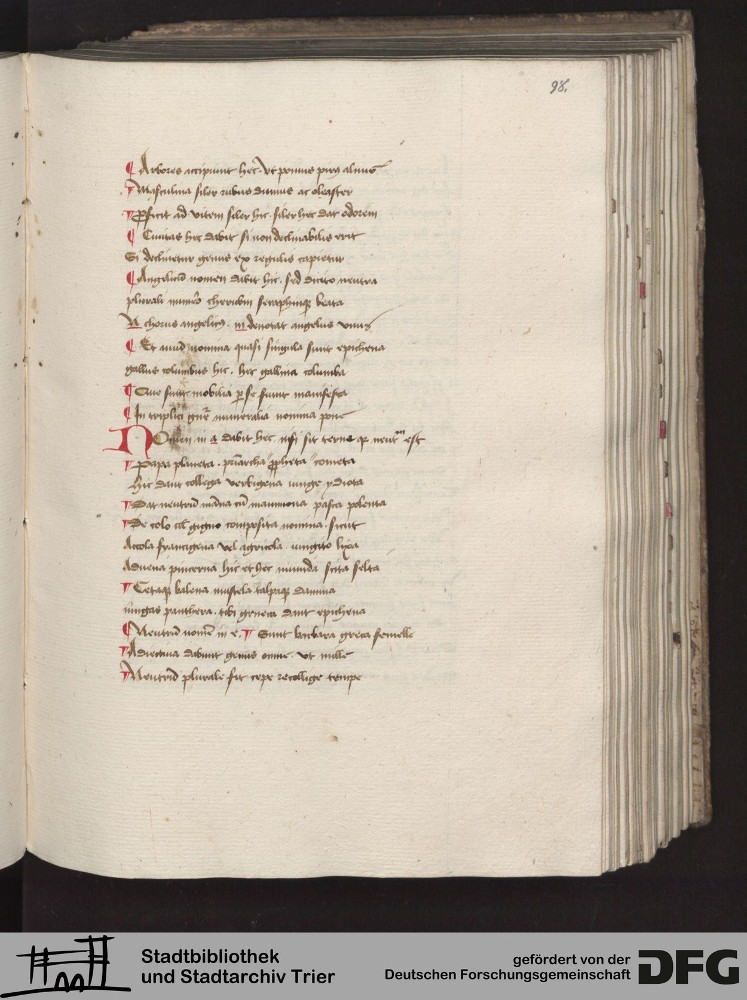 98.
¶ Arbores accipiunt hec. vt pomus pirus alnus
¶ Masculina siler rubus dumus ac oleaster
¶ Proficit ad vitem siler hic. siler hec dat odorem
¶ Ciuitas hec dabit si non declinabilis erit
Si declinetur genus ex regulis capietur
¶ Angelicum nomen dabit hic. sed dicito neutra
plurali numero cherubin seraphinque beata
N chorus angelicus. m denotat angelus vnus
¶ Et auium nomina quasi singula sunt epichena
gallus columbus hic. hec gallina columba
¶ Que sunt mobilia per se sunt manifesta
¶ In triplici genere numeralia nomina pone
Nomen in a dabit hec nisi sit terne quia neutrum est
¶ Papa planeta. patriarcha propheta cometa
Hic dant collega verbigena iunge ydiota
¶ Dat neutrum manna cum mammona pasca polenta
¶ De colo gigno composita nomina. sicut
Accola francigena vel agricola. iungito lixa
Aduena pincerna hic et hec
¶ Cetaque balena mustela talpaque damma
iungas panthera. tibi greneca dant epichena
¶ Neutrum nomen in e. ¶ Sunt barbara greca femelle
¶ Adiectiua dabunt genus omne. vt mille
¶ Neutrum plurale sit cepe recollige tempe
Stadtbibliothek
und Stadtarchiv Trier
gefördert von der
Deutschen Forschungsgemeinschaft
DFG